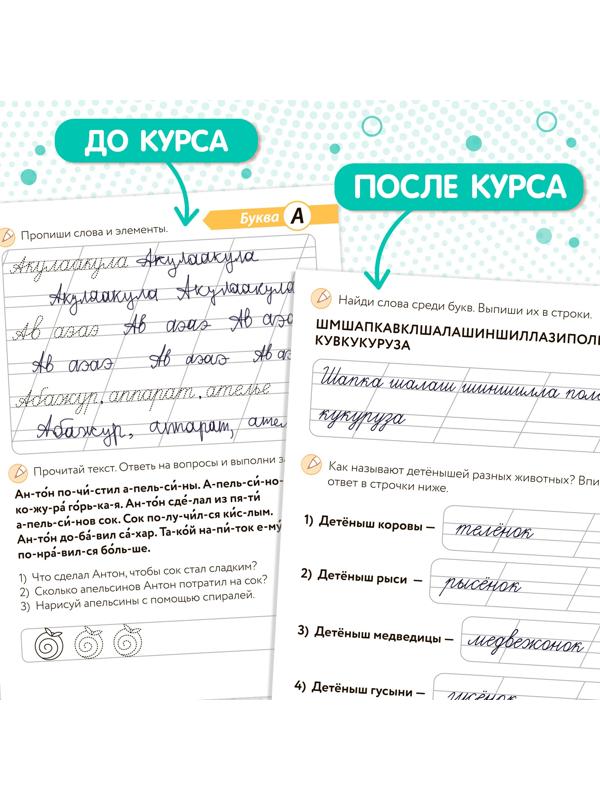 ДО КУРСА
ПОСЛЕ КУРСА
Буква А
Пропиши слова и элементы.
Акулаакула Акулаакула
Акулаакула Акулаакула
Ав аэаэ Ав аэаэ Ав аэаэ
Ав аэаэ Ав аэаэ Ав аэ
Абажур, аппарат, ателье
Абажур, аппарат, ателье
Прочитай текст. Ответь на вопросы и выполни за
Ан-то́н по-чи́-стил а-пель-си́-ны. А-пель-си́-но-
ко-жу-ра́ го́рь-ка-я. Ан-то́н сде́-лал из пя-ти́
а-пель-си́-нов сок. Сок по-лу-чи́л-ся ки́с-лым.
Ан-то́н до-ба́-вил са́-хар. Та-ко́й на-пи́-ток е-му́
по-нра́-вил-ся бо́ль-ше.
1) Что сделал Антон, чтобы сок стал сладким?
2) Сколько апельсинов Антон потратил на сок?
3) Нарисуй апельсины с помощью спиралей.
Найди слова среди букв. Выпиши их в строки.
ШМШАПКАВКЛШАЛАШИНШИЛЛАЗИПОЛИ
КУВКУКУРУЗА
Шапка шалаш шиншилла пол
кукуруза
Как называют детёнышей разных животных? Впи
ответ в строчки ниже.
1) Детёныш коровы — телёнок
2) Детёныш рыси — рысёнок
3) Детёныш медведицы — медвежонок
4) Детёныш гусыни —